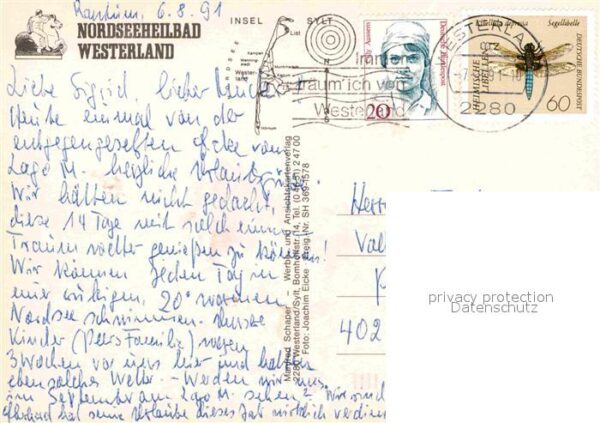 Rantum, 6.8.91
NORDSEEHEILBAD
WESTERLAND
INSEL SYLT
List
Kampen
Westerland
NORDSEE
Cilly Aussem
Deutsche Bundespost
20
Immer
träum' ich von
Westerland
WESTERLAND
2280
Libellula depressa Segellibelle
HEIMISCHE LIBELLEN
DEUTSCHE BUNDESPOST
60
Liebe Sigrid, lieber
Heute einmal von der
entgegengesetzten Ecke vom
Lago M. herzliche Urlaubsgrüße
Wir hätten nicht gedacht,
diese 14 Tage mit solch einem
Traumwetter genießen zu können!
Wir können jeden Tag in
einer ruhigen, 20° warmen
Nordsee schwimmen. Unsere
Kinder (Peers Familie) waren
3 Wochen vor uns hier und hatten
ebensolches Wetter. - Werden wir uns
im September am Lago M. sehen? Wir sind
hat seine Urlaube dieses Jahr wirklich verdient
Manfred Schaper - Werbe- und Ansichtskartenverlag
2280 Westerland/Sylt, Bomhoffstr. 14, Tel. (04651) 24700
Foto: Joachim Eicke Freig.-Nr. SH 369-1578
Herr
Val
402
privacy protection
Datenschutz